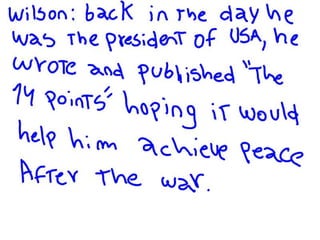 Wilson: back in the day he
was the president of USA, he
wrote and published "The
14 points" hoping it would
help him achieve peace
After the war.